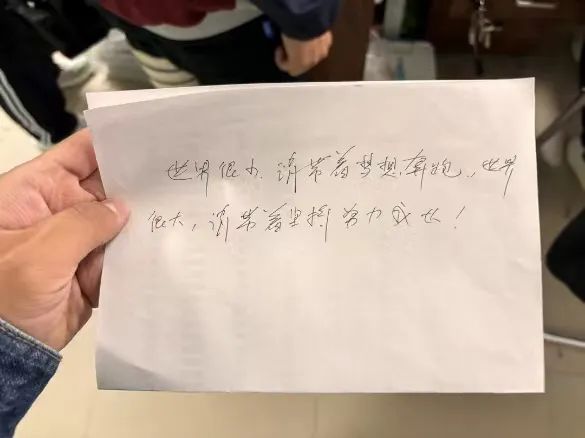 世界很小,请带着梦想奔跑,世界
很大,请带着坚持努力成长!